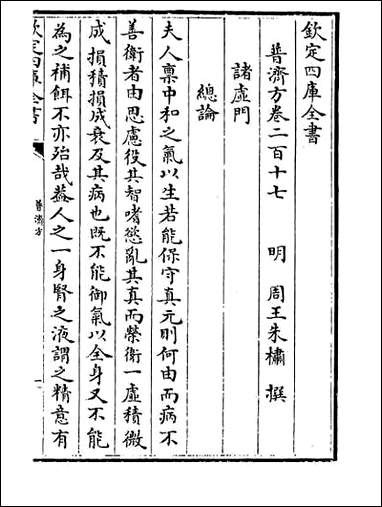 欽定四庫全書
普濟方卷二百十七 明 周王朱橚 撰
諸虛門
總論
夫人稟中和之氣以生若能保守真元則何由而病不
善衛者由思慮役其智嗜慾亂其真而榮衛一虛積微
成損積損成衰及其病也既不能御氣以全身又不能
為之補餌不亦殆哉葢人之一身腎之液謂之精意有
欽定四庫全書
普濟方
一